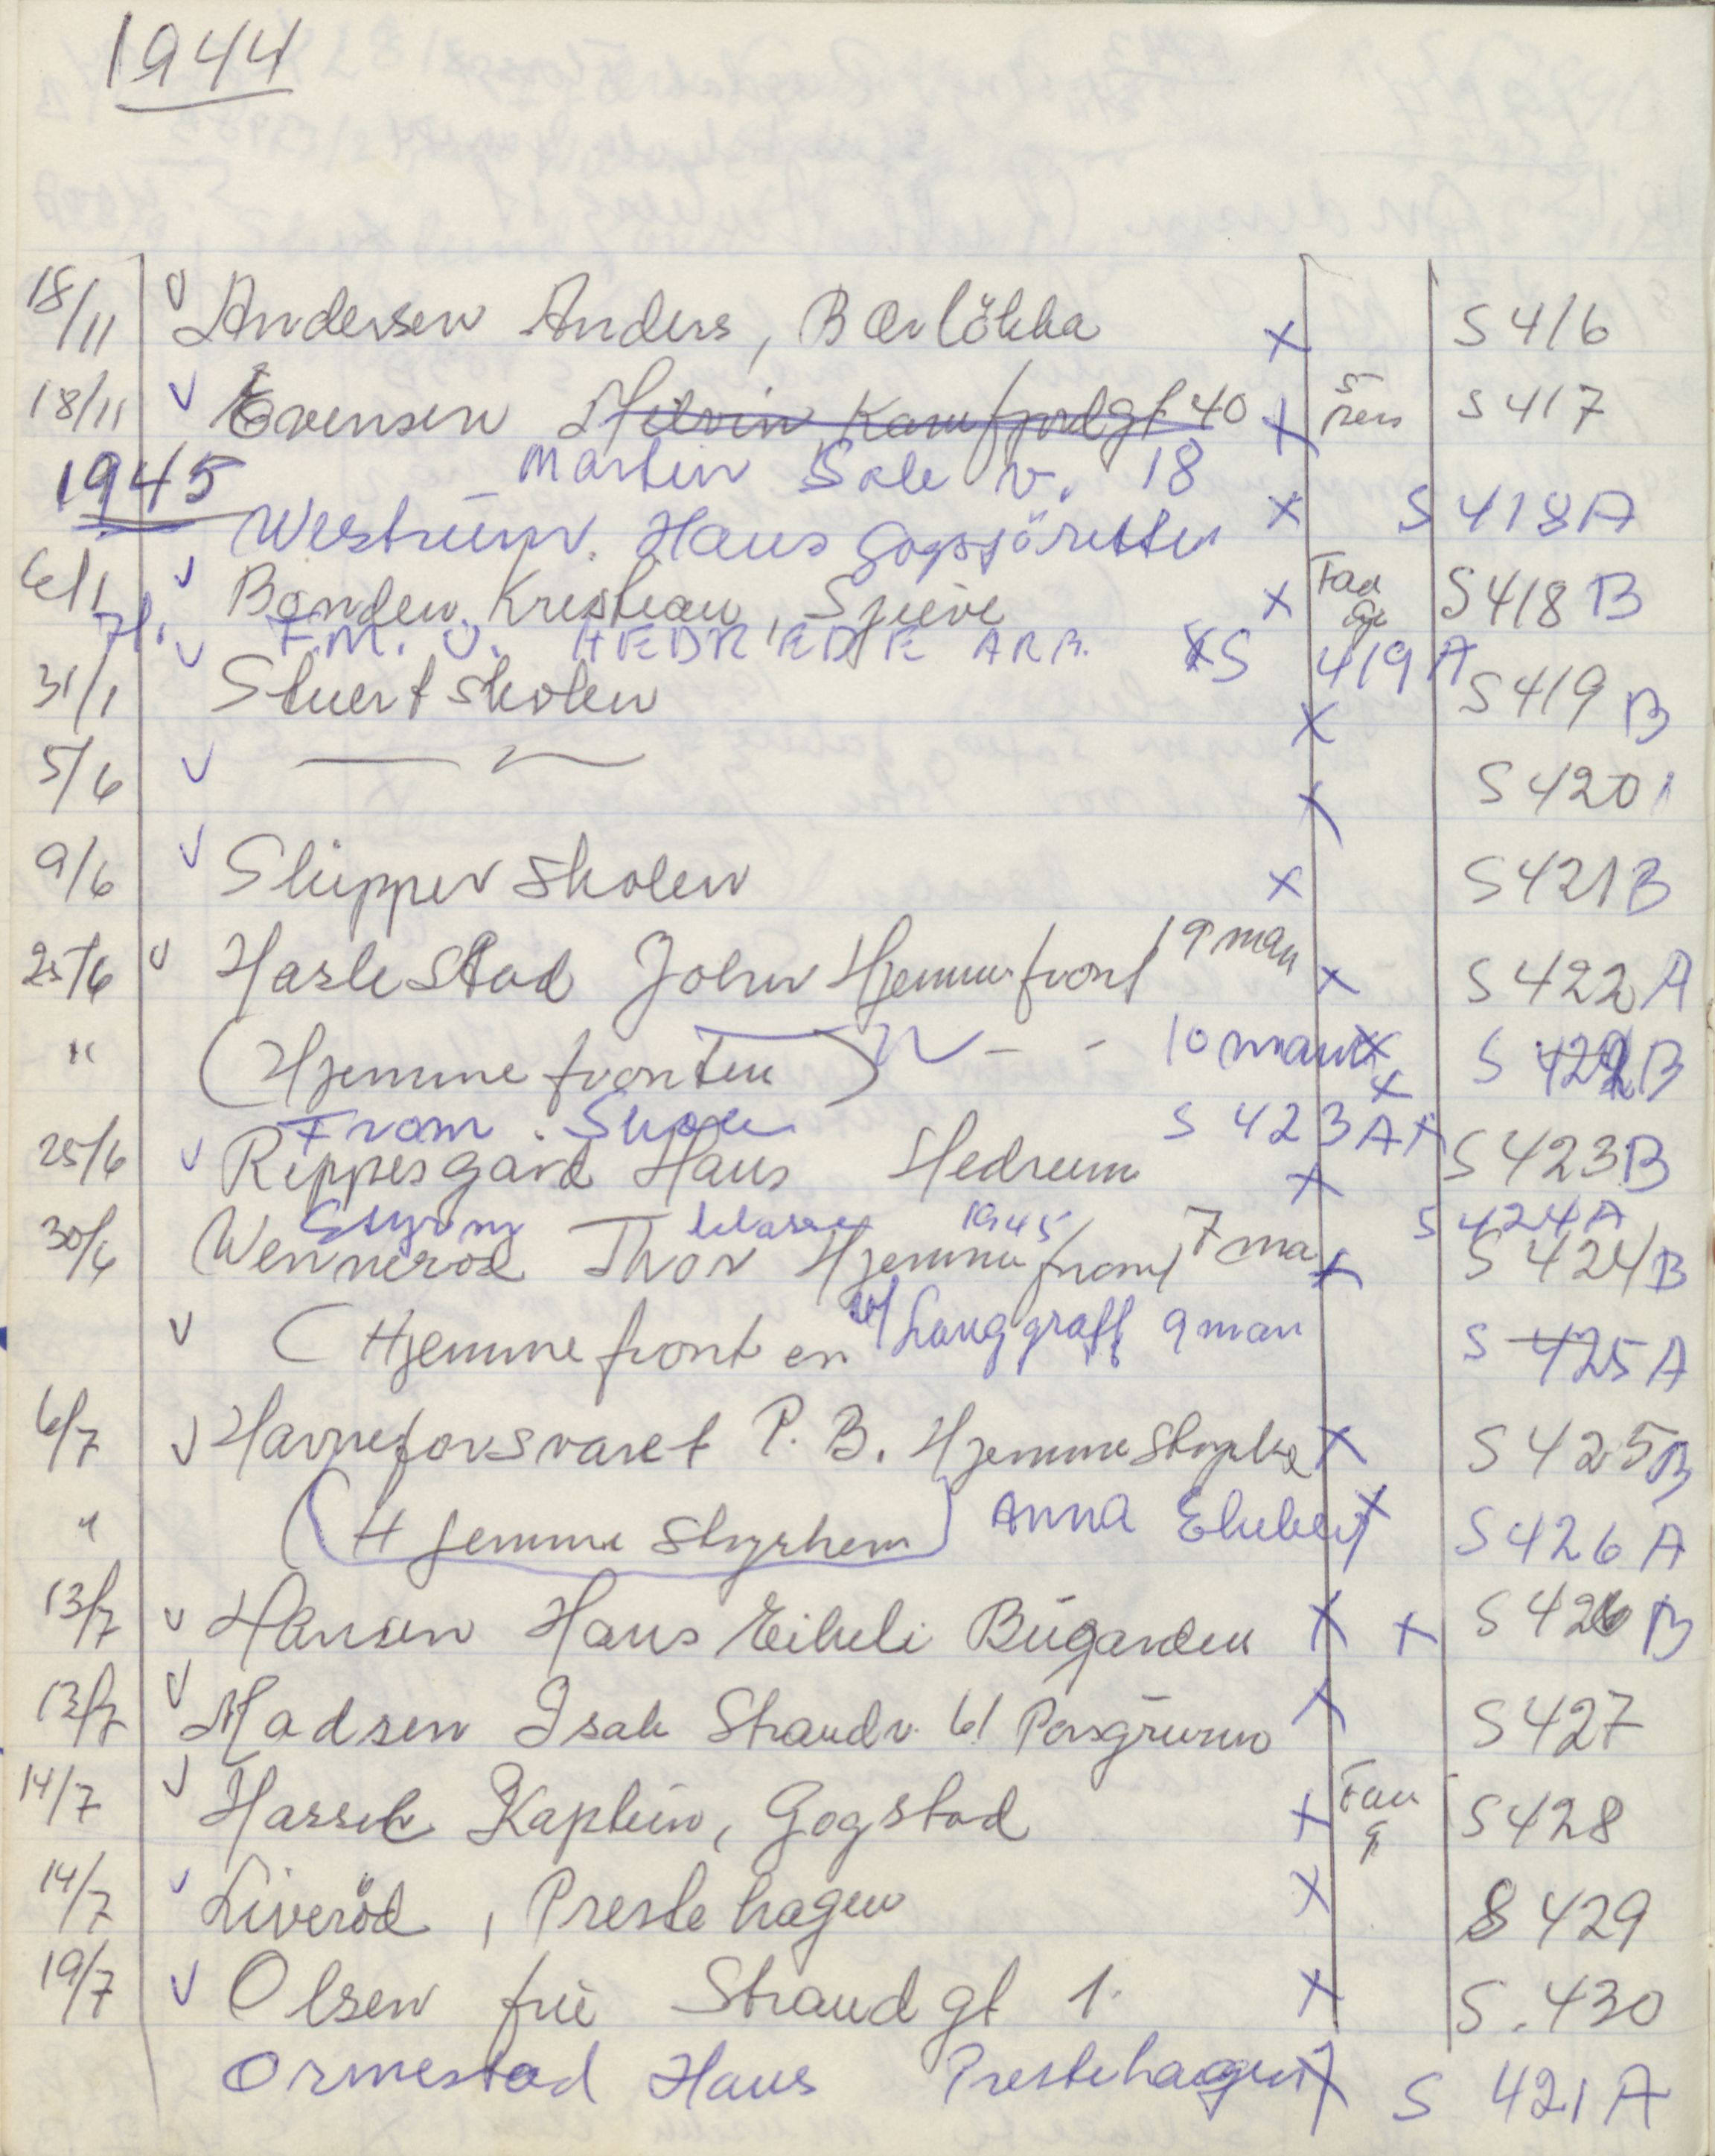 1944
18/11 v Andersen Anders, Bærlökka x S 416
18/11 v Evensen Melvin Kamfjordgt 40 x S 417
Martin Sole v. 18
1945
Westrum. Hans Gogsjöretten x S 418A
6/1 v Bonden, Kristian, Sjeve x S 418 B
F.M. U. HEDR ARB. xS 419 A
31/1 v Stuertskolen x S 419 B
5/6 v — " — x S 420
9/6 v Skipper skolen x S 421 B
25/6 v Haslestad John Hjemmefront 19 man x S 422 A
" (Hjemmefronten) - - 10 man x S 422 B
From. S 423 A x
25/6 v Rippesgard Hans Hedrum x S 423 B
Styrm klasse 1945 S 424 A
30/6 Wennerød Thor Hjemmefront 7 ma x S 424 B
v (Hjemmefronten v/ Langgraff 9 man S 425 A
6/7 v Havneforsvaret P. B. Hjemmestyrke x S 425 B
" (Hjemme styrkem) ANNA x S 426 A
13/7 v Hansen Hans Eikeli Bugarden x x S 426 B
13/7 v Madsen Isak Strandv. 61 Porsgrunn x S 427
14/7 v Hassel Kaptein, Gogstad x Fang S 428
14/7 v Liveröd, Prestehagen x S 429
19/7 v Olsen frü Strandgt 1. x S. 430
Ormestad Hans Prestehagen x S 421 A